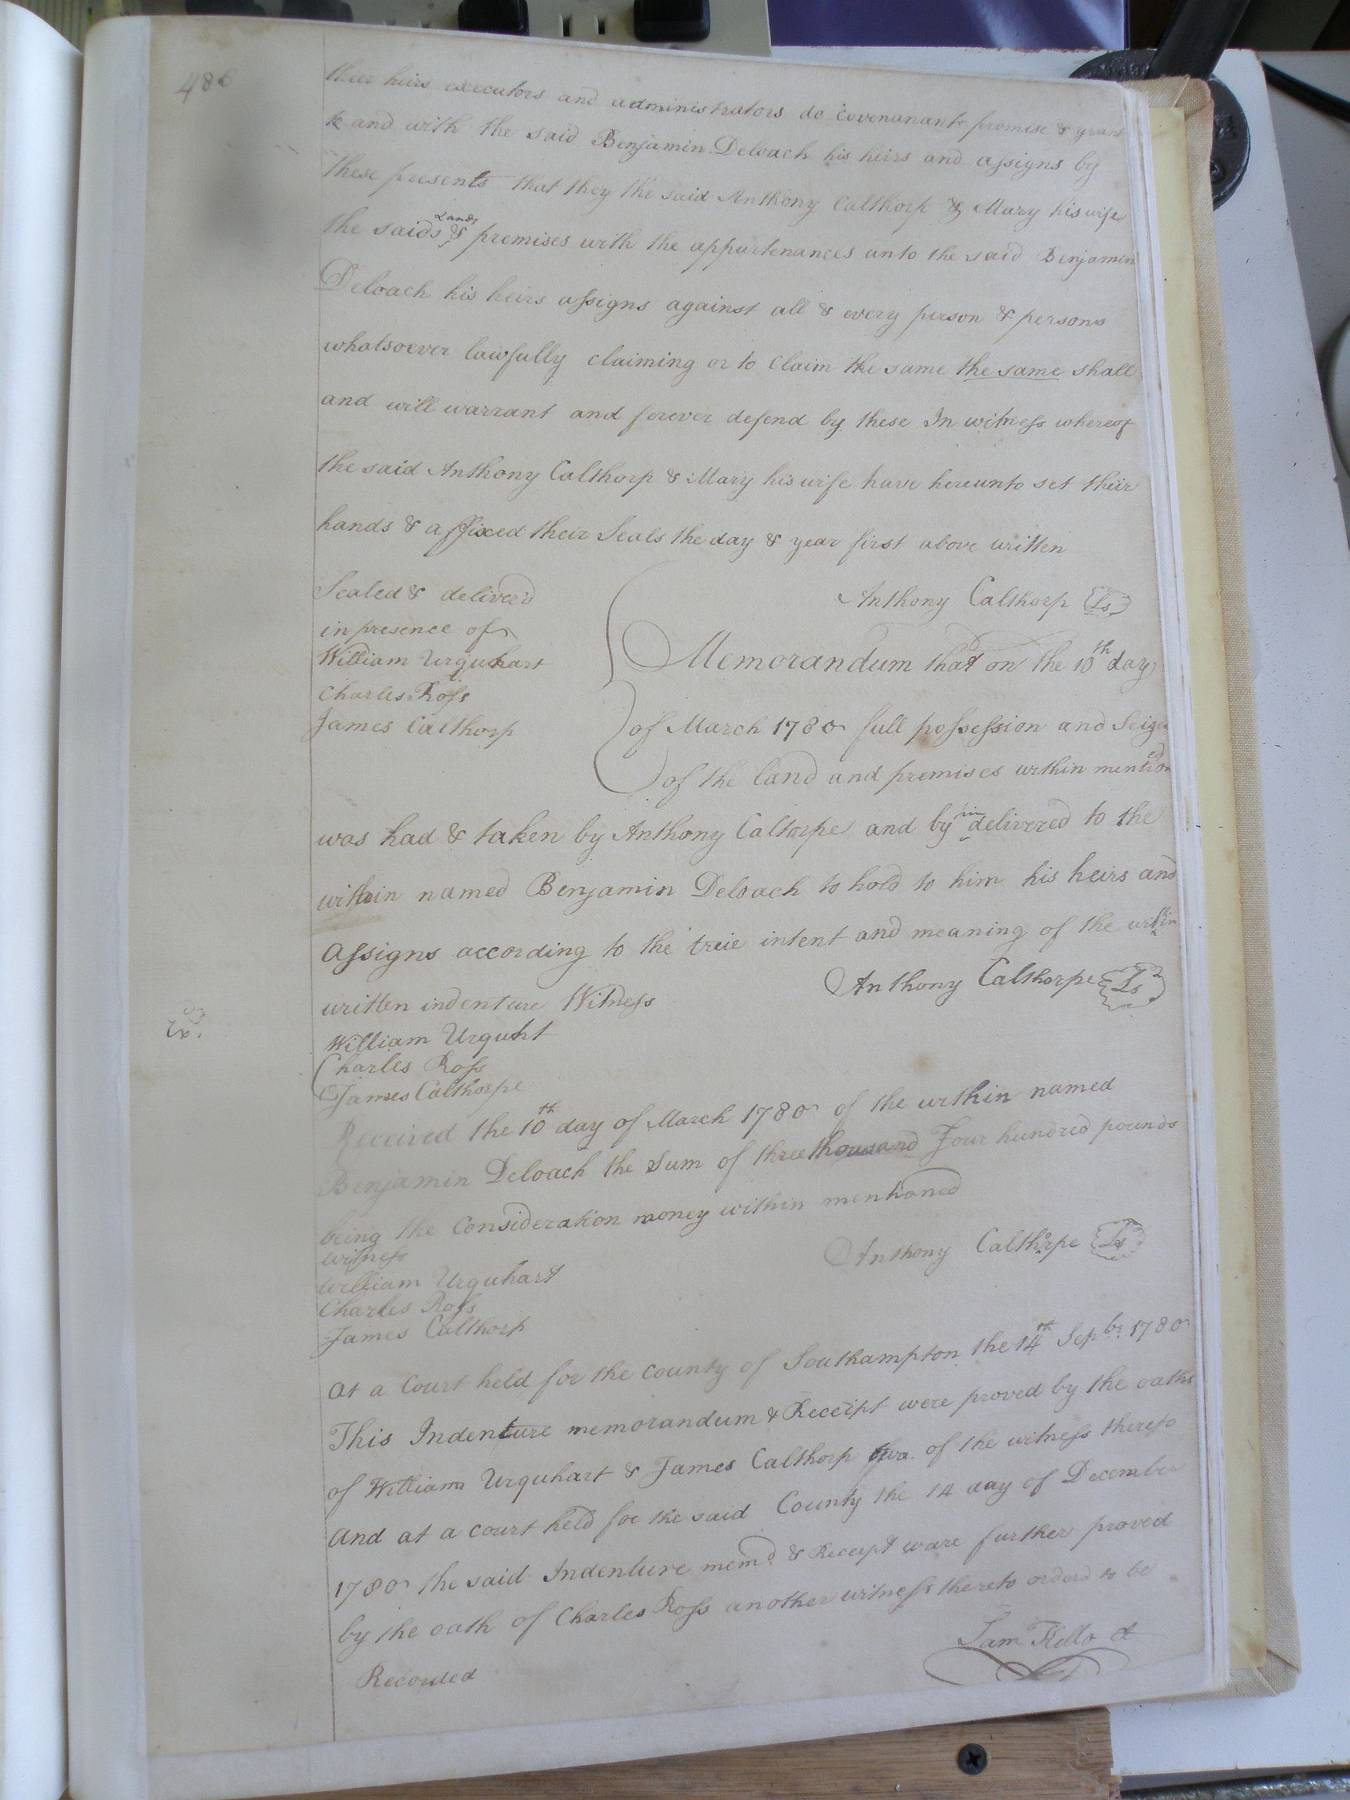 486
their heirs executors and administrators do Covenanant promise & grant
to and with the said Benjamin Deloach his heirs and assigns by
these presents that they the said Anthony Calthorp & Mary his wife
the saids Lands & premises with the appurtenances unto the said Benjamin
Deloach his heirs assigns against all & every person & persons
whatsoever lawfully claiming or to Claim the same the same shall
and will warrant and forever defend by these In witness whereof
the said Anthony Calthorp & Mary his wife have hereunto set their
hands & affixed their Seals the day & year first above written
Sealed & deliver'd
in presence of
William Urquhart
Charles Ross
James Calthorp
Anthony Calthorp Ls
Memorandum that on the 10th day
of March 1780 full possession and Seizen
of the land and premises within mentioned
was had & taken by Anthony Caltorpe and by him delivered to the
within named Benjamin Deloach to hold to him his heirs and
Assigns according to the treie intent and meaning of the within
written indenture Witness
Anthony Calthorpe Ls
Ex.
William Urquht
Charles Ross
James Calthorpe
Received the 10th day of March 1780 of the within named
Benjamin Deloach the Sum of three thousand Four hundred pounds
being the Consideration money within mentioned
witness
Anthony Calthorpe Ls
William Urquhart
Charles Ross
James Calthorp
At a Court held for the County of Southampton the 14th Sepbr. 1780
This Indenture memorandum & Receipt were proved by the oaths
of William Urquhart & James Calthorp two of the witness thereto
And at a Court held for the said County the 14 day of December
1780 the said Indenture memd & Receipt ware further proved
by the oath of Charles Ross another witness thereto orderd to be
Recorded
Sam Kello